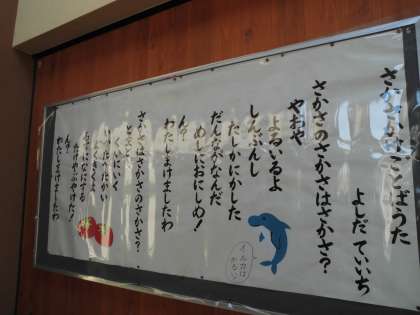 ことばうた
よしだ ていいち
さかさのさかさはさかさ?
やおや
よるいるよ
しんぶんし
たしかにかした
だんながなんだ
めしにおにしめ!
ん?
わたしまけましたわ
さかさはさかさのさかさ?
とまと
くいにいく
よくきくよ
たけやぶやけた!
ん?
わたしまけましたわ
イルカは
かるい